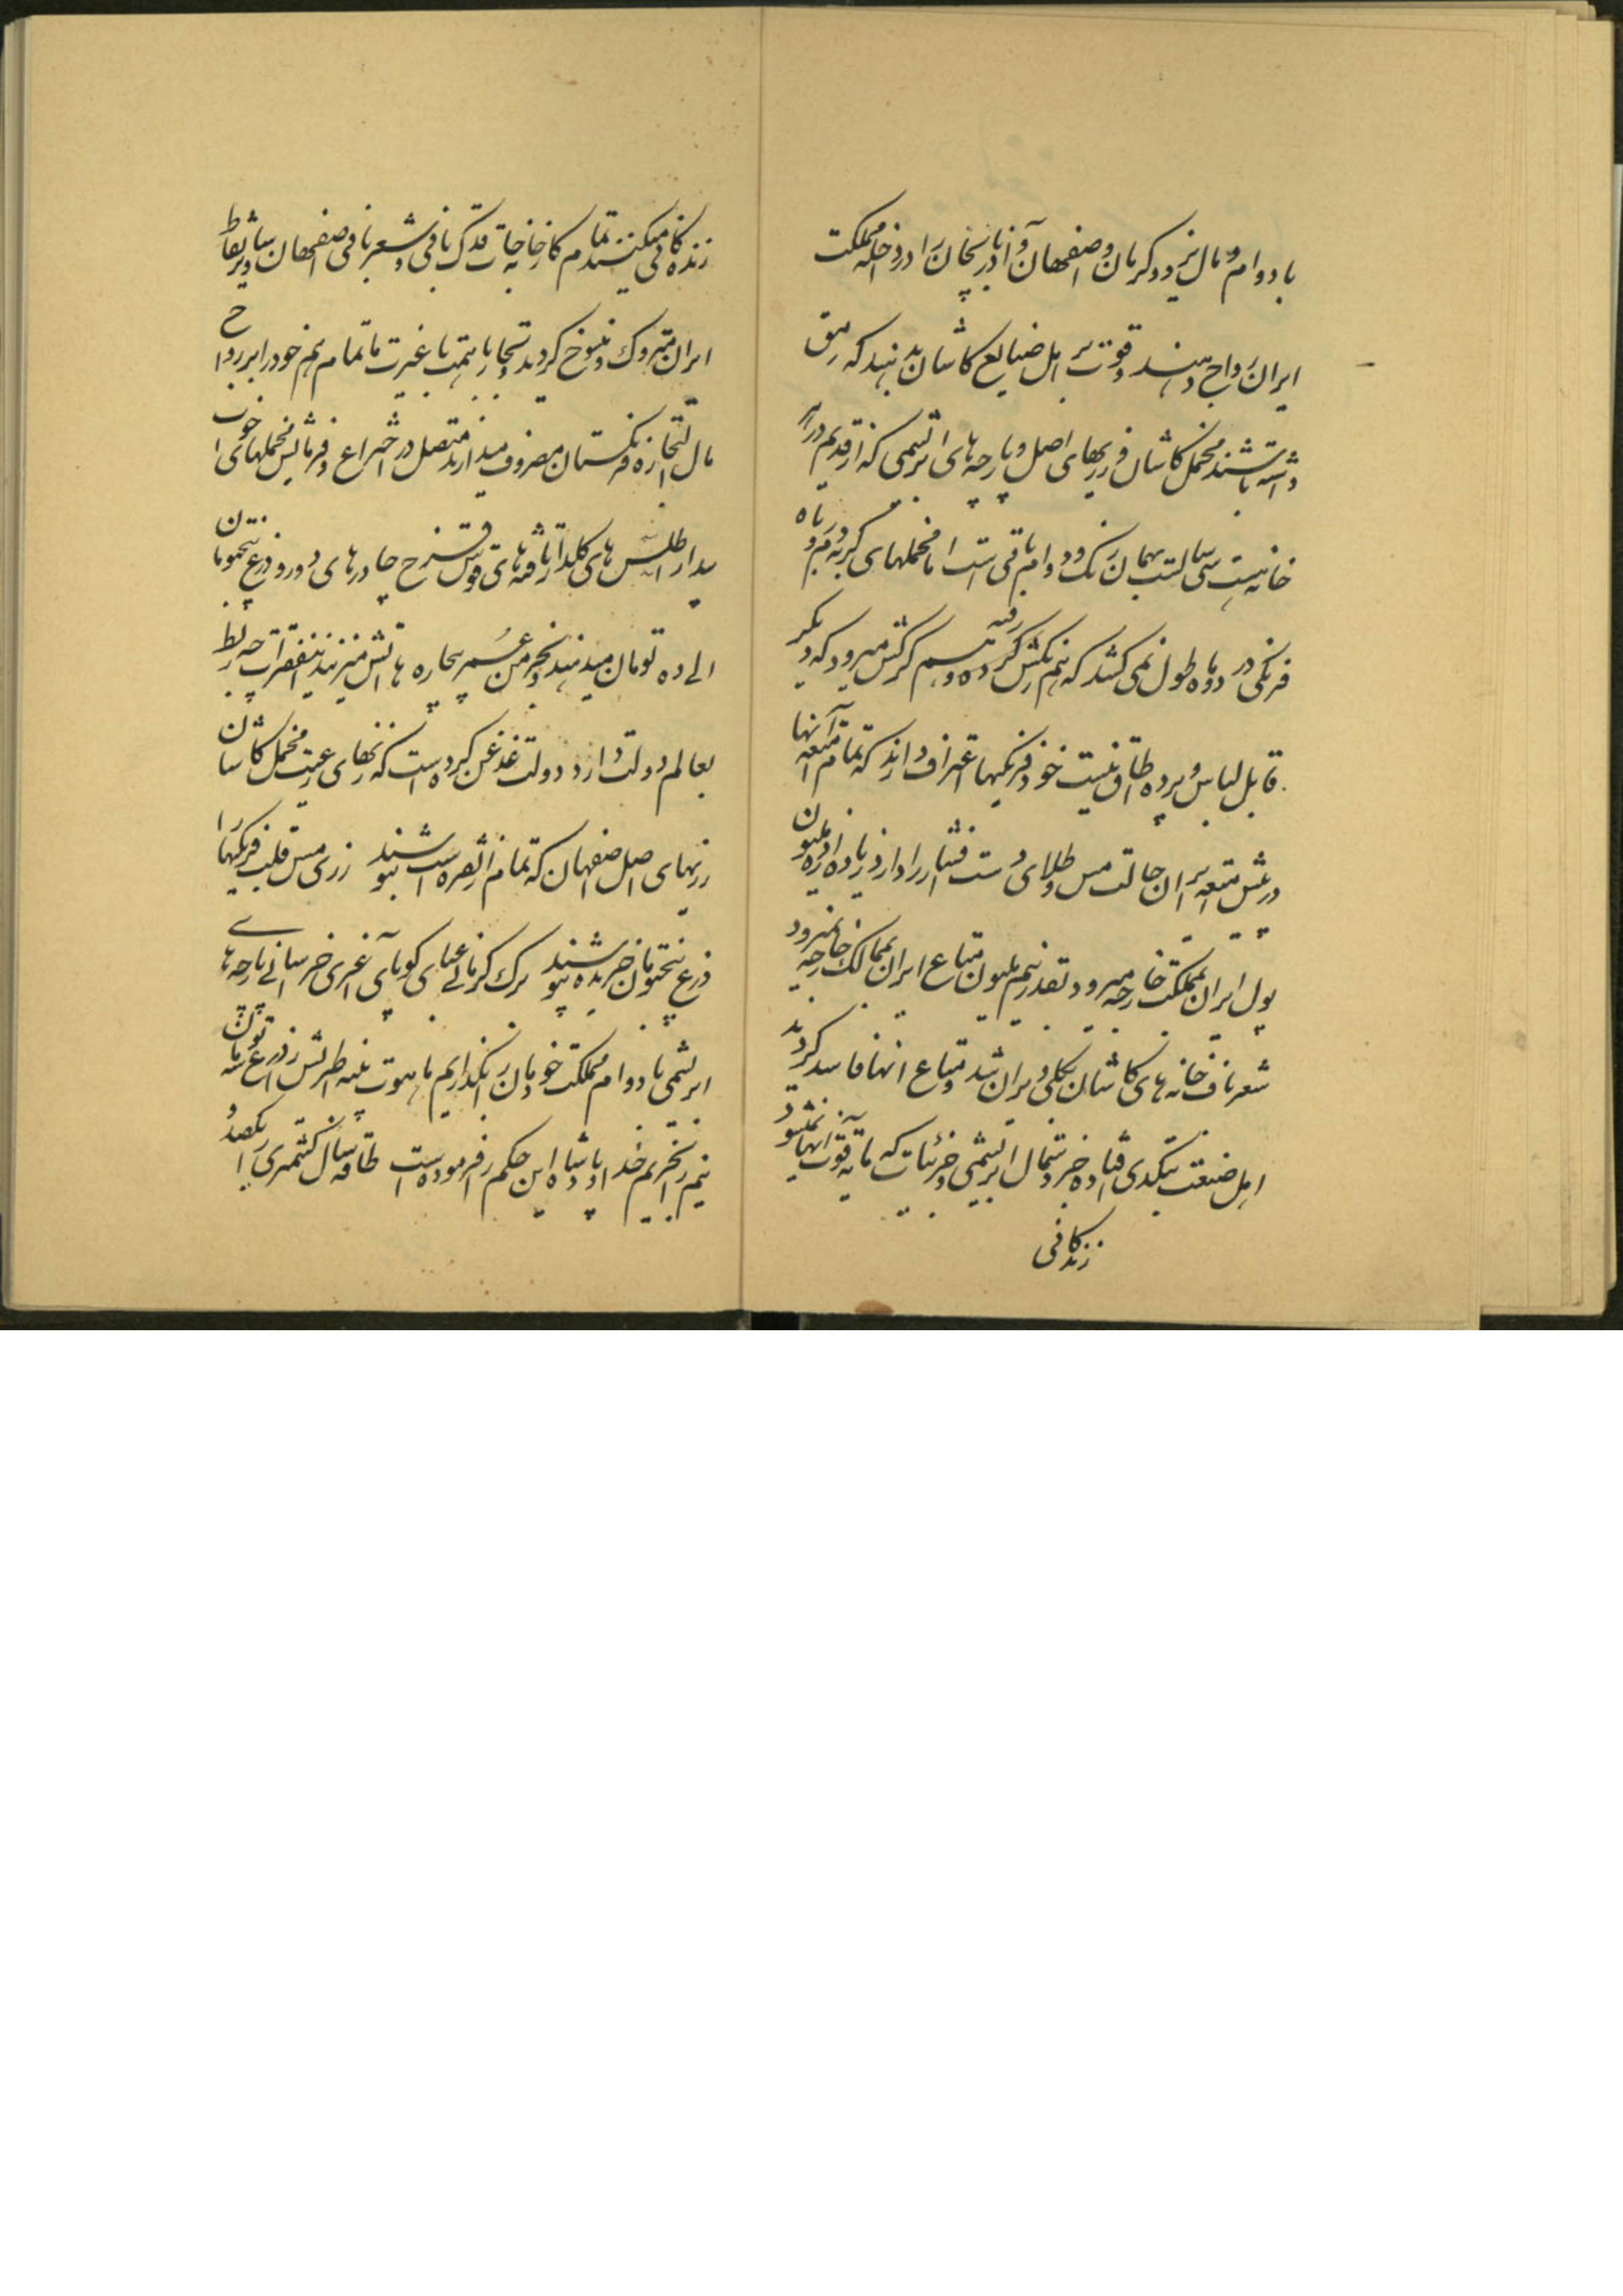 با دوام و مال یزد و کرمان و اصفهان و آذربایجان را در داخله مملکت
ایران رواج دهند و قوت بر اهل صنایع کاشان بدهند که رمق
داشته باشند مخمل کاشان و زریهای اصل و پارچه های ابریشمی که از قدیم در
خانه هست سی سالست بهمان رنگ و دوام باقی است اما مخملهای کم دوام
فرنگی در دو ماه طول نمی کشد که هم رنگش رفته و هم کرکش میرود که دیگر
قابل لباس و پرده اطاق نیست خود فرنگیها اعتراف دارند که تمام امتعه آنها
در پیش امتعه ایران حالت مس و طلای دست افشار را دارد زیاده از ده ملیون
پول ایران بمملکت خارجه میرود بقدر نیم ملیون متاع ایران بممالک خارجه نمیرود
شعرباف خانه های کاشان بکلی ویران شد و متاع آنها فاسد گردید
اهل صنعت بتکدی افتاده جز دستمال ابریشمی و جزئیات که مایه قوت آنها نمیشود
زندگانی
زندگانی میکنند تمام کارخانجات قدک بافی و شعربافی اصفهان و سایر نقاط
ایران متروک و منسوخ گردید و تجار با همت با غیرت ما تمام هم خود را بر رواج
مال التجاره فرنگستان مصروف میدارند متصل در اختراع و فرمایش مخملهای خواب
بیدار اطلس های گلدار تافته های قوس قزح چادرهای دورو ذرع پنجتومان
الی ده تومان میدهند و بخرمن عمر بیچاره ها آتش میزنند اینفقرات چه ربط
بعالم دولت دارد دولت غدغن کرده است که زنهای رعیت مخمل کاشان
زریهای اصل اصفهان که تمام از نقره است نپوشند زری مس قلب فرنگیها را
ذرع پنجتومان خریده بپوشند برک کرمانی عبای کوپای آغری خراسانی پارچه های
ابریشمی با دوام مملکت خودمان را نگذاریم ماهوت پنبه اطریش را ذرع سه تومان
نیم نخریم خدا و پادشاه این حکم را فرموده است طاقه شال کشمیری را یکصد و